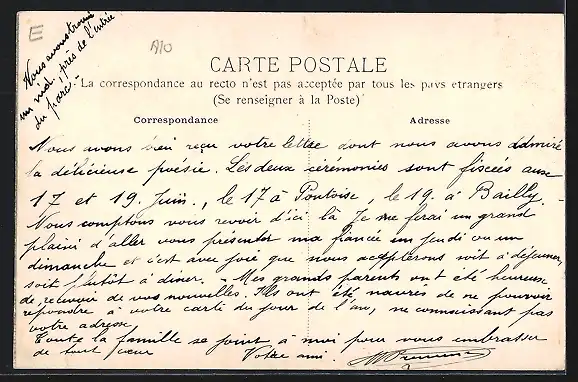 Nous avons trouvé
un nid, près de l'entrée
du parc -
E
A10
CARTE POSTALE
La correspondance au recto n'est pas acceptée par tous les pays etrangers
(Se renseigner à la Poste)
Correspondance
Adresse
Nous avons bien reçu votre lettre dont nous avons admiré
la délicieuse poésie. Les deux cérémonies sont fixées aux
17 et 19 Juin, le 17 à Pontoise, le 19 à Bailly. -
Nous comptons vous revoir d'ici là. Je me ferai un grand
plaisir d'aller vous présenter ma fiancée un jeudi ou un
dimanche et c'est avec joie que nous accepterons soit à déjeuner,
soit plutôt à dîner. - Mes grands parents ont été heureux
de recevoir de vos nouvelles. Ils ont été navrés de ne pouvoir
repondre à votre carte du jour de l'an, ne connaissant pas
votre adresse
Toute la famille se joint à moi pour vous embrasser
de tout cœur
Votre ami